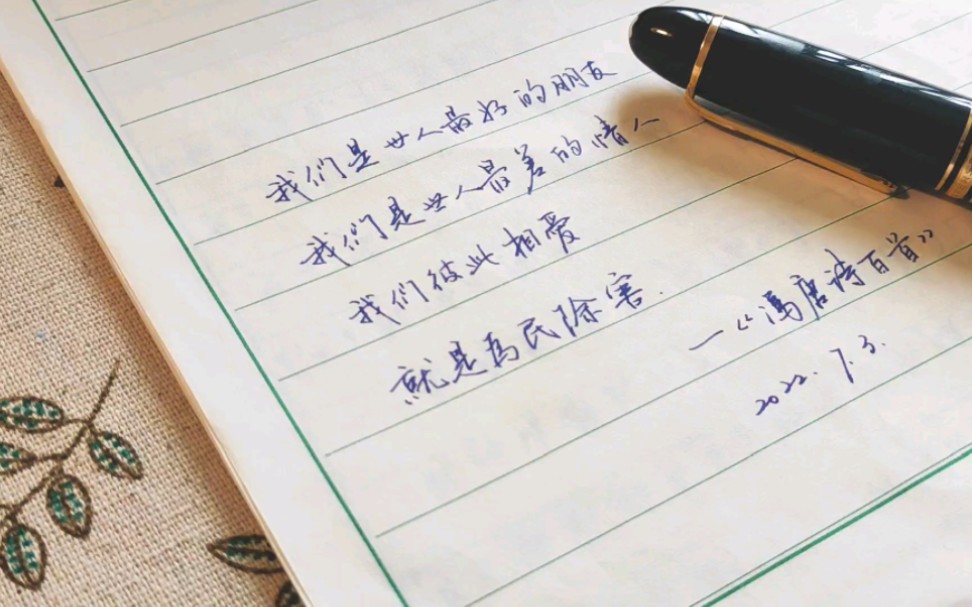 我们是世人最好的朋友
我们是世人最差的情人
我们彼此相爱
就是为民除害.
—《冯唐诗百首》
2022.7.3.